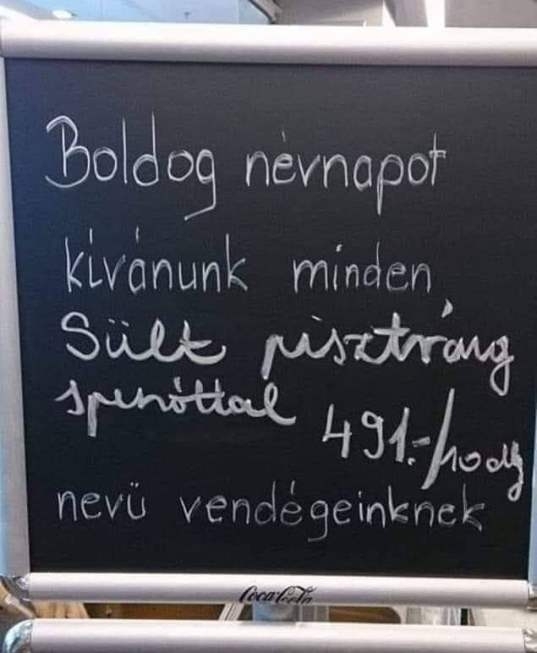 Boldog névnapot
kívánunk minden
Sült pisztráng
spenóttal 491.-/10 dkg
nevü vendégeinknek
Coca-Cola